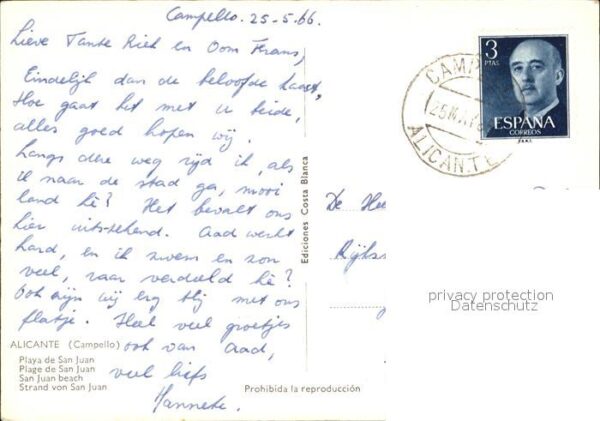 Campello. 25-5.66.
Lieve Tante Riek en Oom Frans,
Eindelijk dan de beloofde kaart,
Hoe gaat het met u beide,
alles goed hopen wij.
Langs deze weg rijd ik, als
ik naar de stad ga, mooi
land hè? Het bevalt ons
hier uitstekend. Aad werkt
hard, en ik zwem en zon
veel, raar verdeeld hè?
Ook zijn wij erg blij met ons
flatje. Heel veel groetjes
ook van Aad,
veel liefs
Hanneke.
ALICANTE (Campello)
Playa de San Juan
Plage de San Juan
San Juan beach
Strand von San Juan
Prohibida la reproducción
Ediciones Costa Blanca
3
PTAS
ESPAÑA
CORREOS
ALICANTE
De
Rijks
privacy protection
Datenschutz